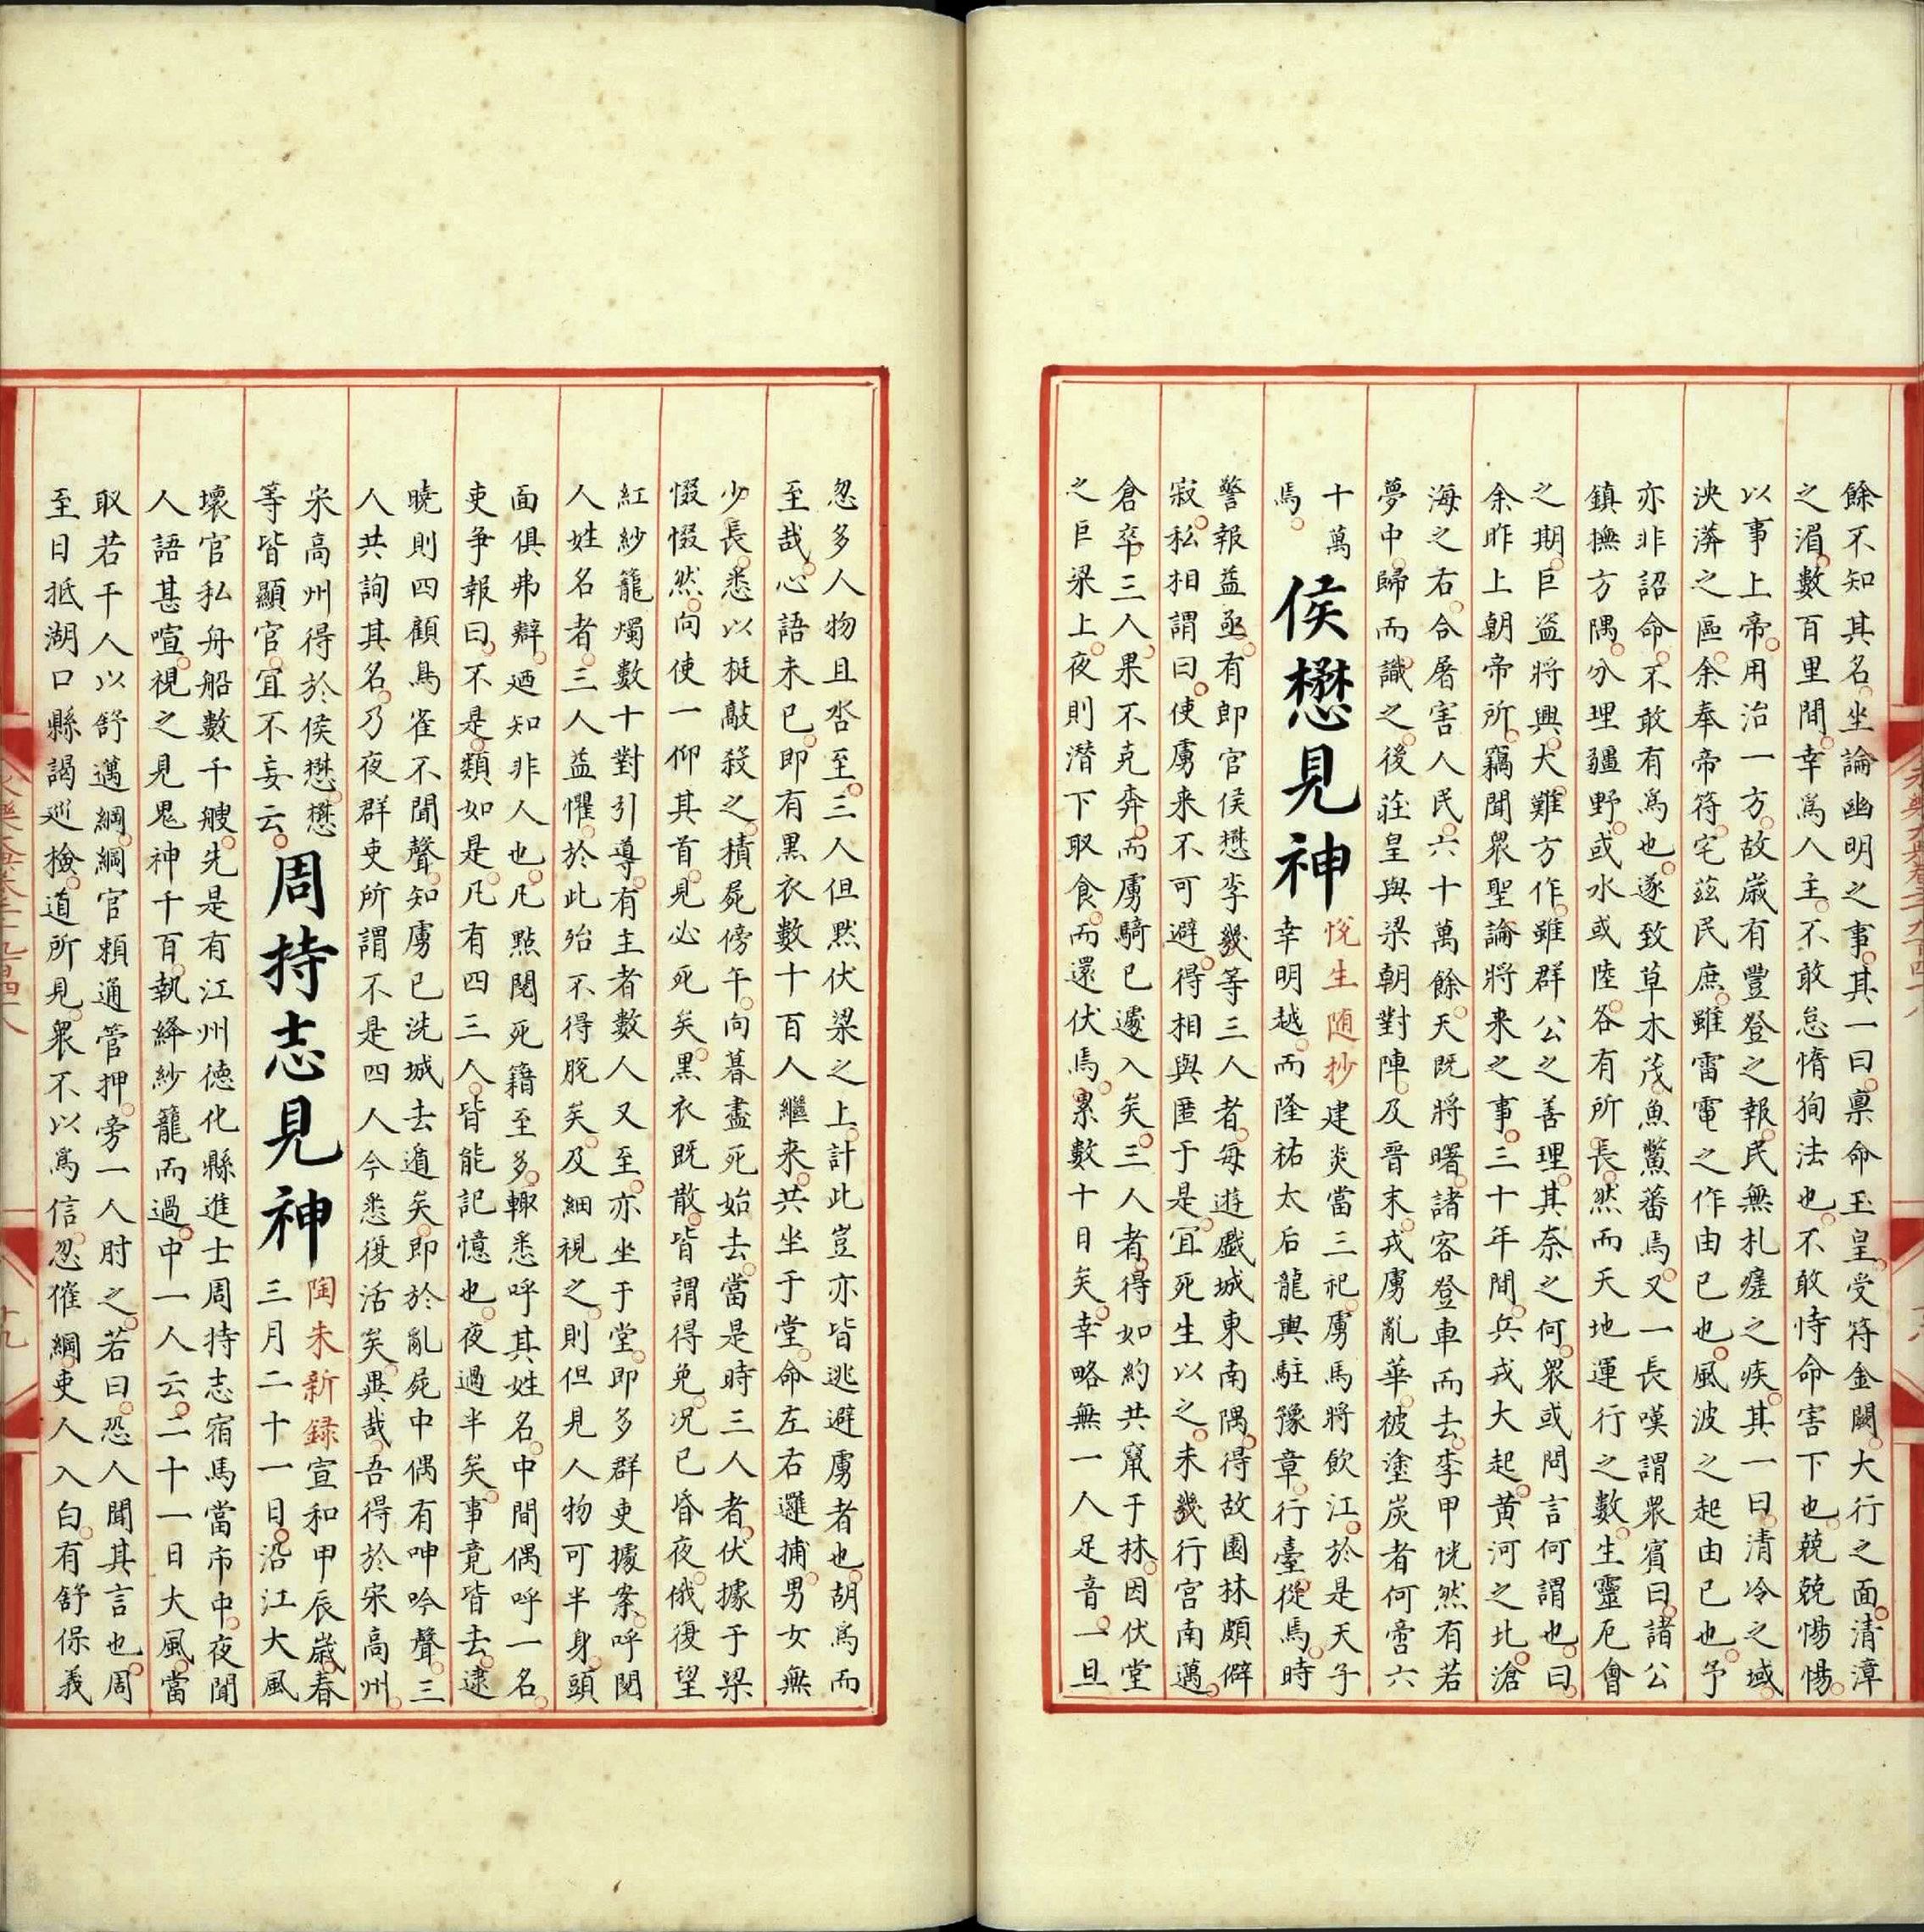 餘不知其名坐論幽明之事其一曰禀命玉皇受符金闕大行之面清漳
之湄數百里間幸為人主不敢怠惰狥法也不敢恃命害下也兢兢惕惕
以事上帝用治一方故歲有豐登之報民無札瘥之疾其一曰清冷之域
泱漭之區余奉帝符宅兹民庶雖雷電之作由已也風波之起由已也予
亦非詔命不敢有為也遂致草木茂魚鱉蕃焉又一長嘆謂衆賓曰諸公
鎮撫方隅分理疆野或水或陸各有所長然而天地運行之數生靈厄會
之期巨盗將興大難方作雖群公之善理其奈之何衆或問言何謂也曰
余昨上朝帝所竊聞衆聖論將来之事三十年間兵戎大起黄河之北滄
海之右合屠害人民六十萬餘天既將曙諸客登車而去李甲恍然有若
夢中歸而識之後莊皇與梁朝對陣及晋末戎虜亂華被塗炭者何啻六
十萬
焉
侯懋見神
悅生随抄
建炎當三祀虜馬將飲江於是天子
幸明越而隆祐太后龍輿駐豫章行臺從焉時
警報益亟有即官侯懋李幾等三人者每遊戲城東南隅得故園林頗僻
寂私相謂曰使虜来不可避得相與匿于是冝死生以之未幾行宫南邁
倉卒三人果不克奔而虜騎已遽入矣三人者得如約共竄于林因伏堂
之巨梁上夜則潜下取食而還伏焉累數十日矣幸略無一人足音一旦
忽多人物且沓至三人但黙伏梁之上計此豈亦皆逃避虜者也胡為而
至哉心語未已即有黒衣數十百人繼来共坐于堂命左右邏捕男女無
少長悉以梃敲殺之積屍傍午向暮盡死始去當是時三人者伏據于梁
惙惙然向使一仰其首見必死矣黒衣既散皆謂得免况已昏夜俄復望
紅紗籠燭數十對引導有主者數人又至亦坐于堂即多群吏據案呼閱
人姓名者三人益懼於此殆不得脱矣及細視之則但見人物可半身頭
面俱弗辯廼知非人也凡㸃閱死籍至多輙悉呼其姓名中間偶呼一名
吏争報曰不是類如是凡有四三人皆能記憶也夜過半矣事竟皆去逮
曉則四顧鳥雀不聞聲知虜已洗城去遁矣即於亂屍中偶有呻吟聲三
人共詢其名乃夜群吏所謂不是四人今悉復活矣異哉吾得於宋高州
宋高州得於侯懋懋
等皆顯官冝不妄云
周持志見神
陶朱新録
宣和甲辰歲春
三月二十一日沿江大風
壞官私舟船數千艘先是有江州德化縣進士周持志宿馬當市中夜聞
人語甚喧視之見鬼神千百執絳紗籠而過中一人云二十一日大風當
取若干人以舒邁綱綱官頼通管押旁一人肘之若曰恐人聞其言也周
至日抵湖口縣謁巡撿道所見衆不以為信忽催綱吏人入白有舒保義